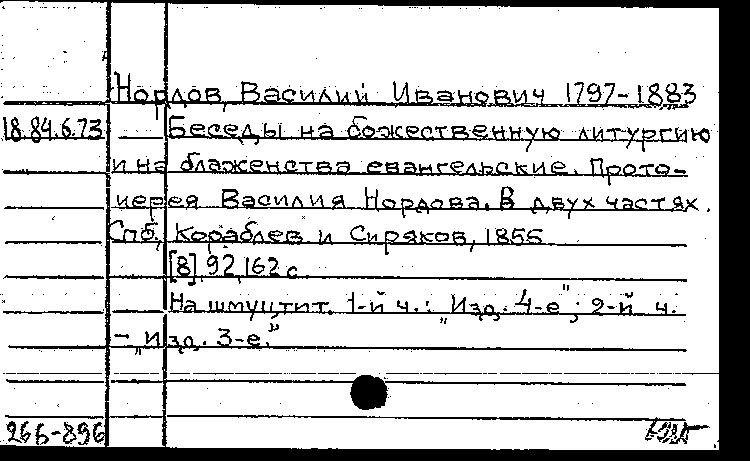 Нордов, Василий Иванович 1797-1883
18.84.6.73 Беседы на божественную литургию
и на блаженства евангельские. Прото-
иерея Василия Нордова. В двух частях.
Спб, Кораблев и Сиряков, 1855
[8], 92, 162 с.
На шмуцтит. 1-й ч.: „Изд. 4-е"; 2-й ч.
- „изд. 3-е."
266-896